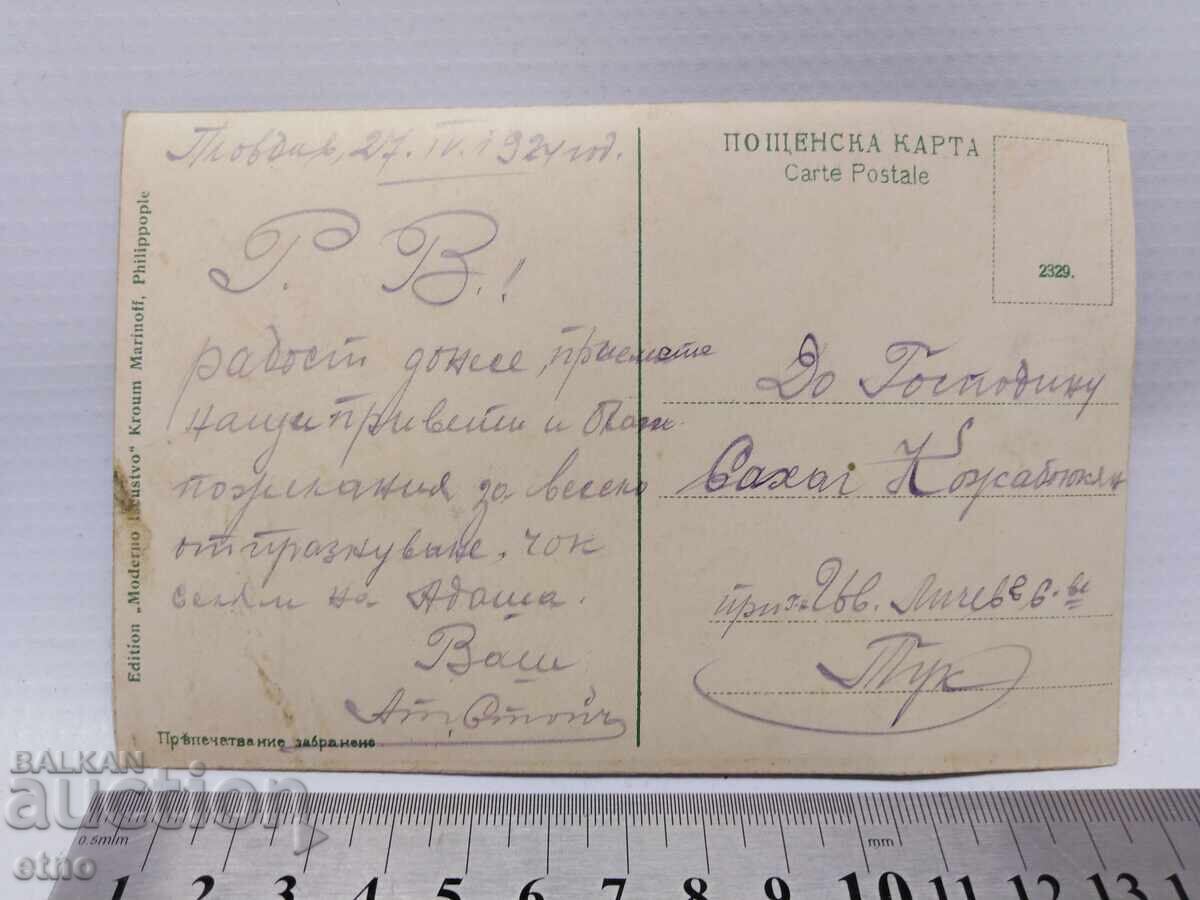 Edition „Moderno Iscustvo“ Kroum Marinoff, Philippople
Пловдив, 27. IV. 1924 год.
Р. В.!
радост донсе, приемете
наши привети и благи
пожелания за весело
отпразнуване. Чок
селям на Адаша.
Ваш
Ат. Стойч
Прѣпечетвание забранено
ПОЩЕНСКА КАРТА
Carte Postale
2329.
До Господину
Сахаг
при Ив. Личев
Тук
BALKAN
auction
etno
0.5m/m
mm
1 2 3 4 5 6 7 8 9 10 11 12 13 1